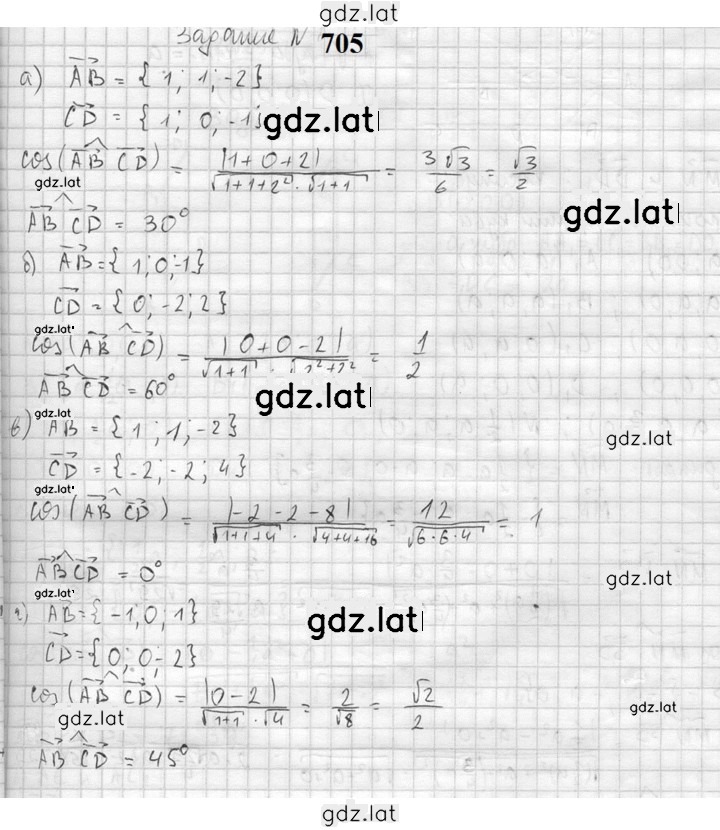 gdz.lat
Задание N 705
а) AB = {1; 1; -2}
CD = {1; 0; -1}
gdz.lat
cos(AB CD) = |1+0+2| / √1+1+2² · √1+1 = 3√3/6 = √3/2
gdz.lat
AB CD = 30°
gdz.lat
б) AB = {1; 0; -1}
CD = {0; -2; 2}
gdz.lat
cos(AB CD) = |0+0-2| / √1+1 · √2²+2² = 1/2
AB CD = 60°
gdz.lat
gdz.lat
в) AB = {1; 1; -2}
gdz.lat
CD = {-2; -2; 4}
gdz.lat
cos(AB CD) = |-2-2-8| / √1+1+4 · √4+4+16 = 12/√6·6·4 = 1
AB CD = 0°
gdz.lat
gdz.lat
г) AB = {-1; 0; 1}
gdz.lat
CD = {0; 0; -2}
cos(AB CD) = |0-2| / √1+1 · √4 = 2/√8 = √2/2
gdz.lat
gdz.lat
AB CD = 45°
gdz.lat